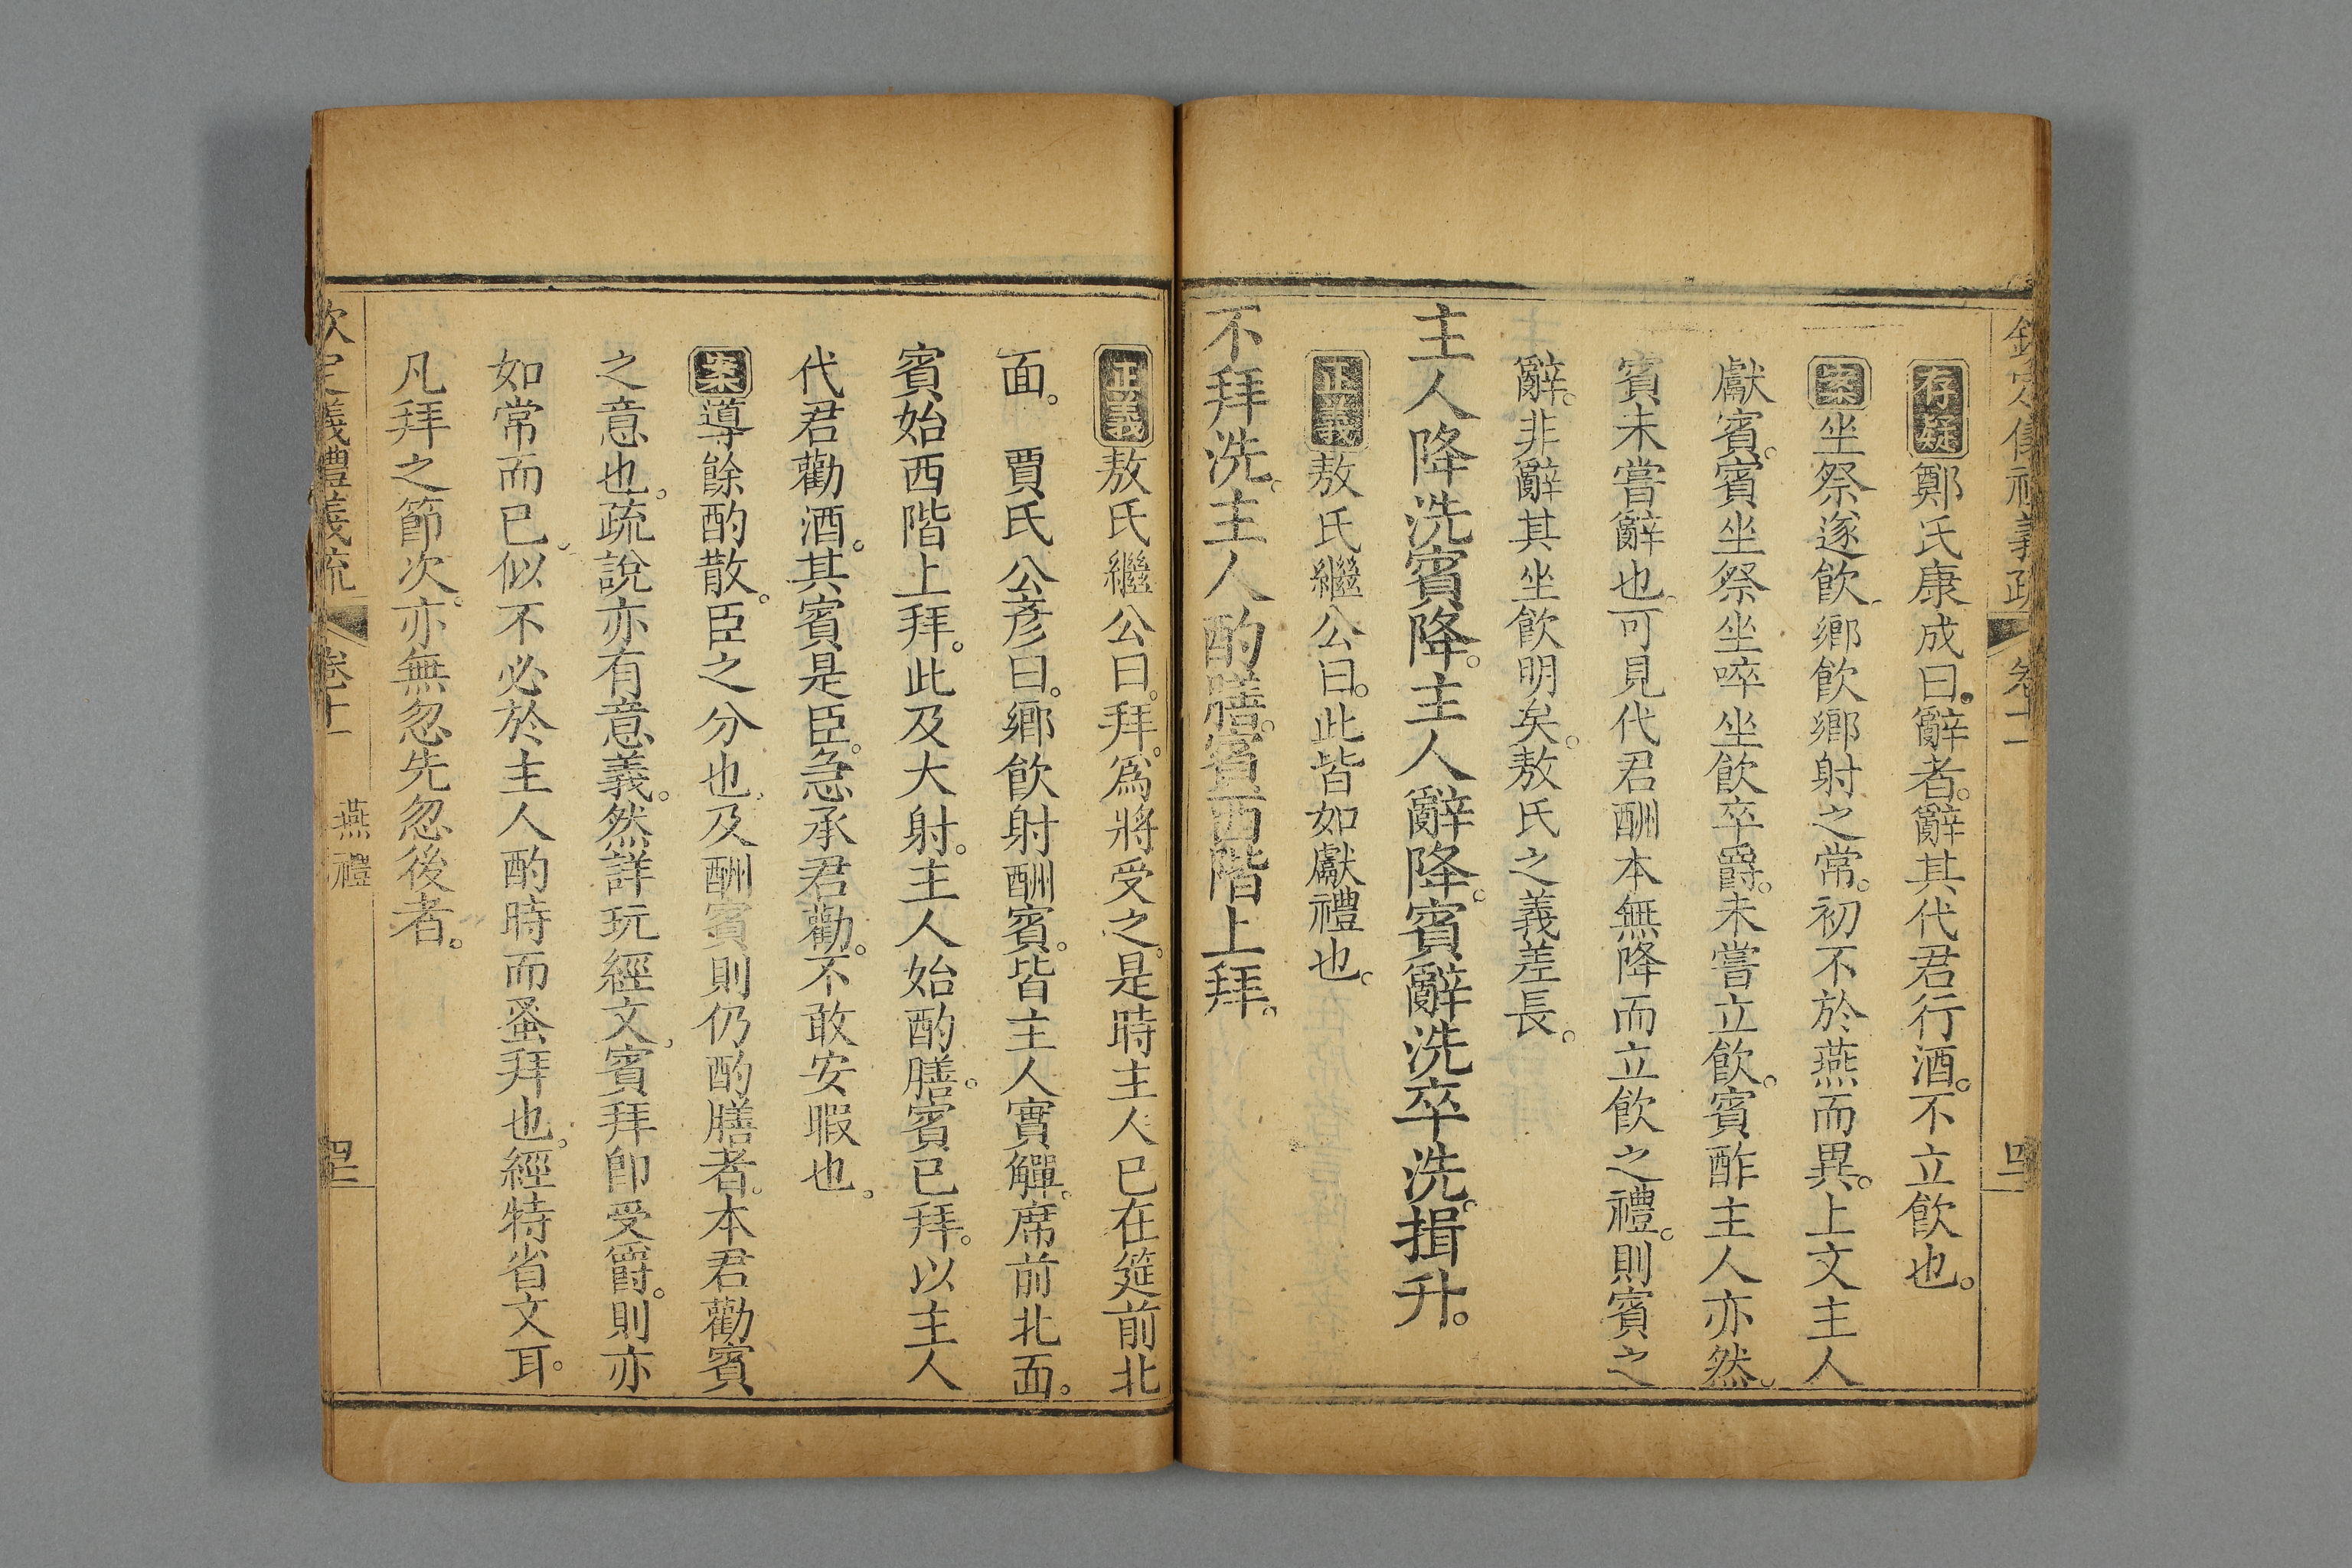 欽定儀禮義疏 卷十一
存疑鄭氏康成曰。辭者。辭其代君行酒。不立飮也。
案坐祭遂飮。鄉飮鄉射之常。初不於燕而異。上文主人
獻賓。賓坐祭坐啐坐飮卒爵。未嘗立飮。賓酢主人亦然。
賓未嘗辭也。可見代君酬本無降而立飮之禮。則賓之
辭。非辭其坐飮明矣。敖氏之義差長。
主人降洗賓降。主人辭降。賓辭洗卒洗。揖升。
正義敖氏繼公曰。此皆如獻禮也。
不拜洗。主人酌膳。賓西階上拜。
正義敖氏繼公曰。拜。爲將受之。是時主人已在筵前北
面。 賈氏公彥曰。鄉飮射酬賓。皆主人實觶。席前北面。
賓始西階上拜。此及大射。主人始酌膳。賓已拜。以主人
代君勸酒。其賓是臣。急承君勸。不敢安暇也。
案導餘酌散。臣之分也。及酬賓則仍酌膳者。本君勸賓
之意也。疏說亦有意義。然詳玩經文。賓拜卽受爵。則亦
如常而已。似不必於主人酌時而蚤拜也。經特省文耳。
凡拜之節次。亦無忽先忽後者。
欽定義禮義疏 卷十一 燕禮